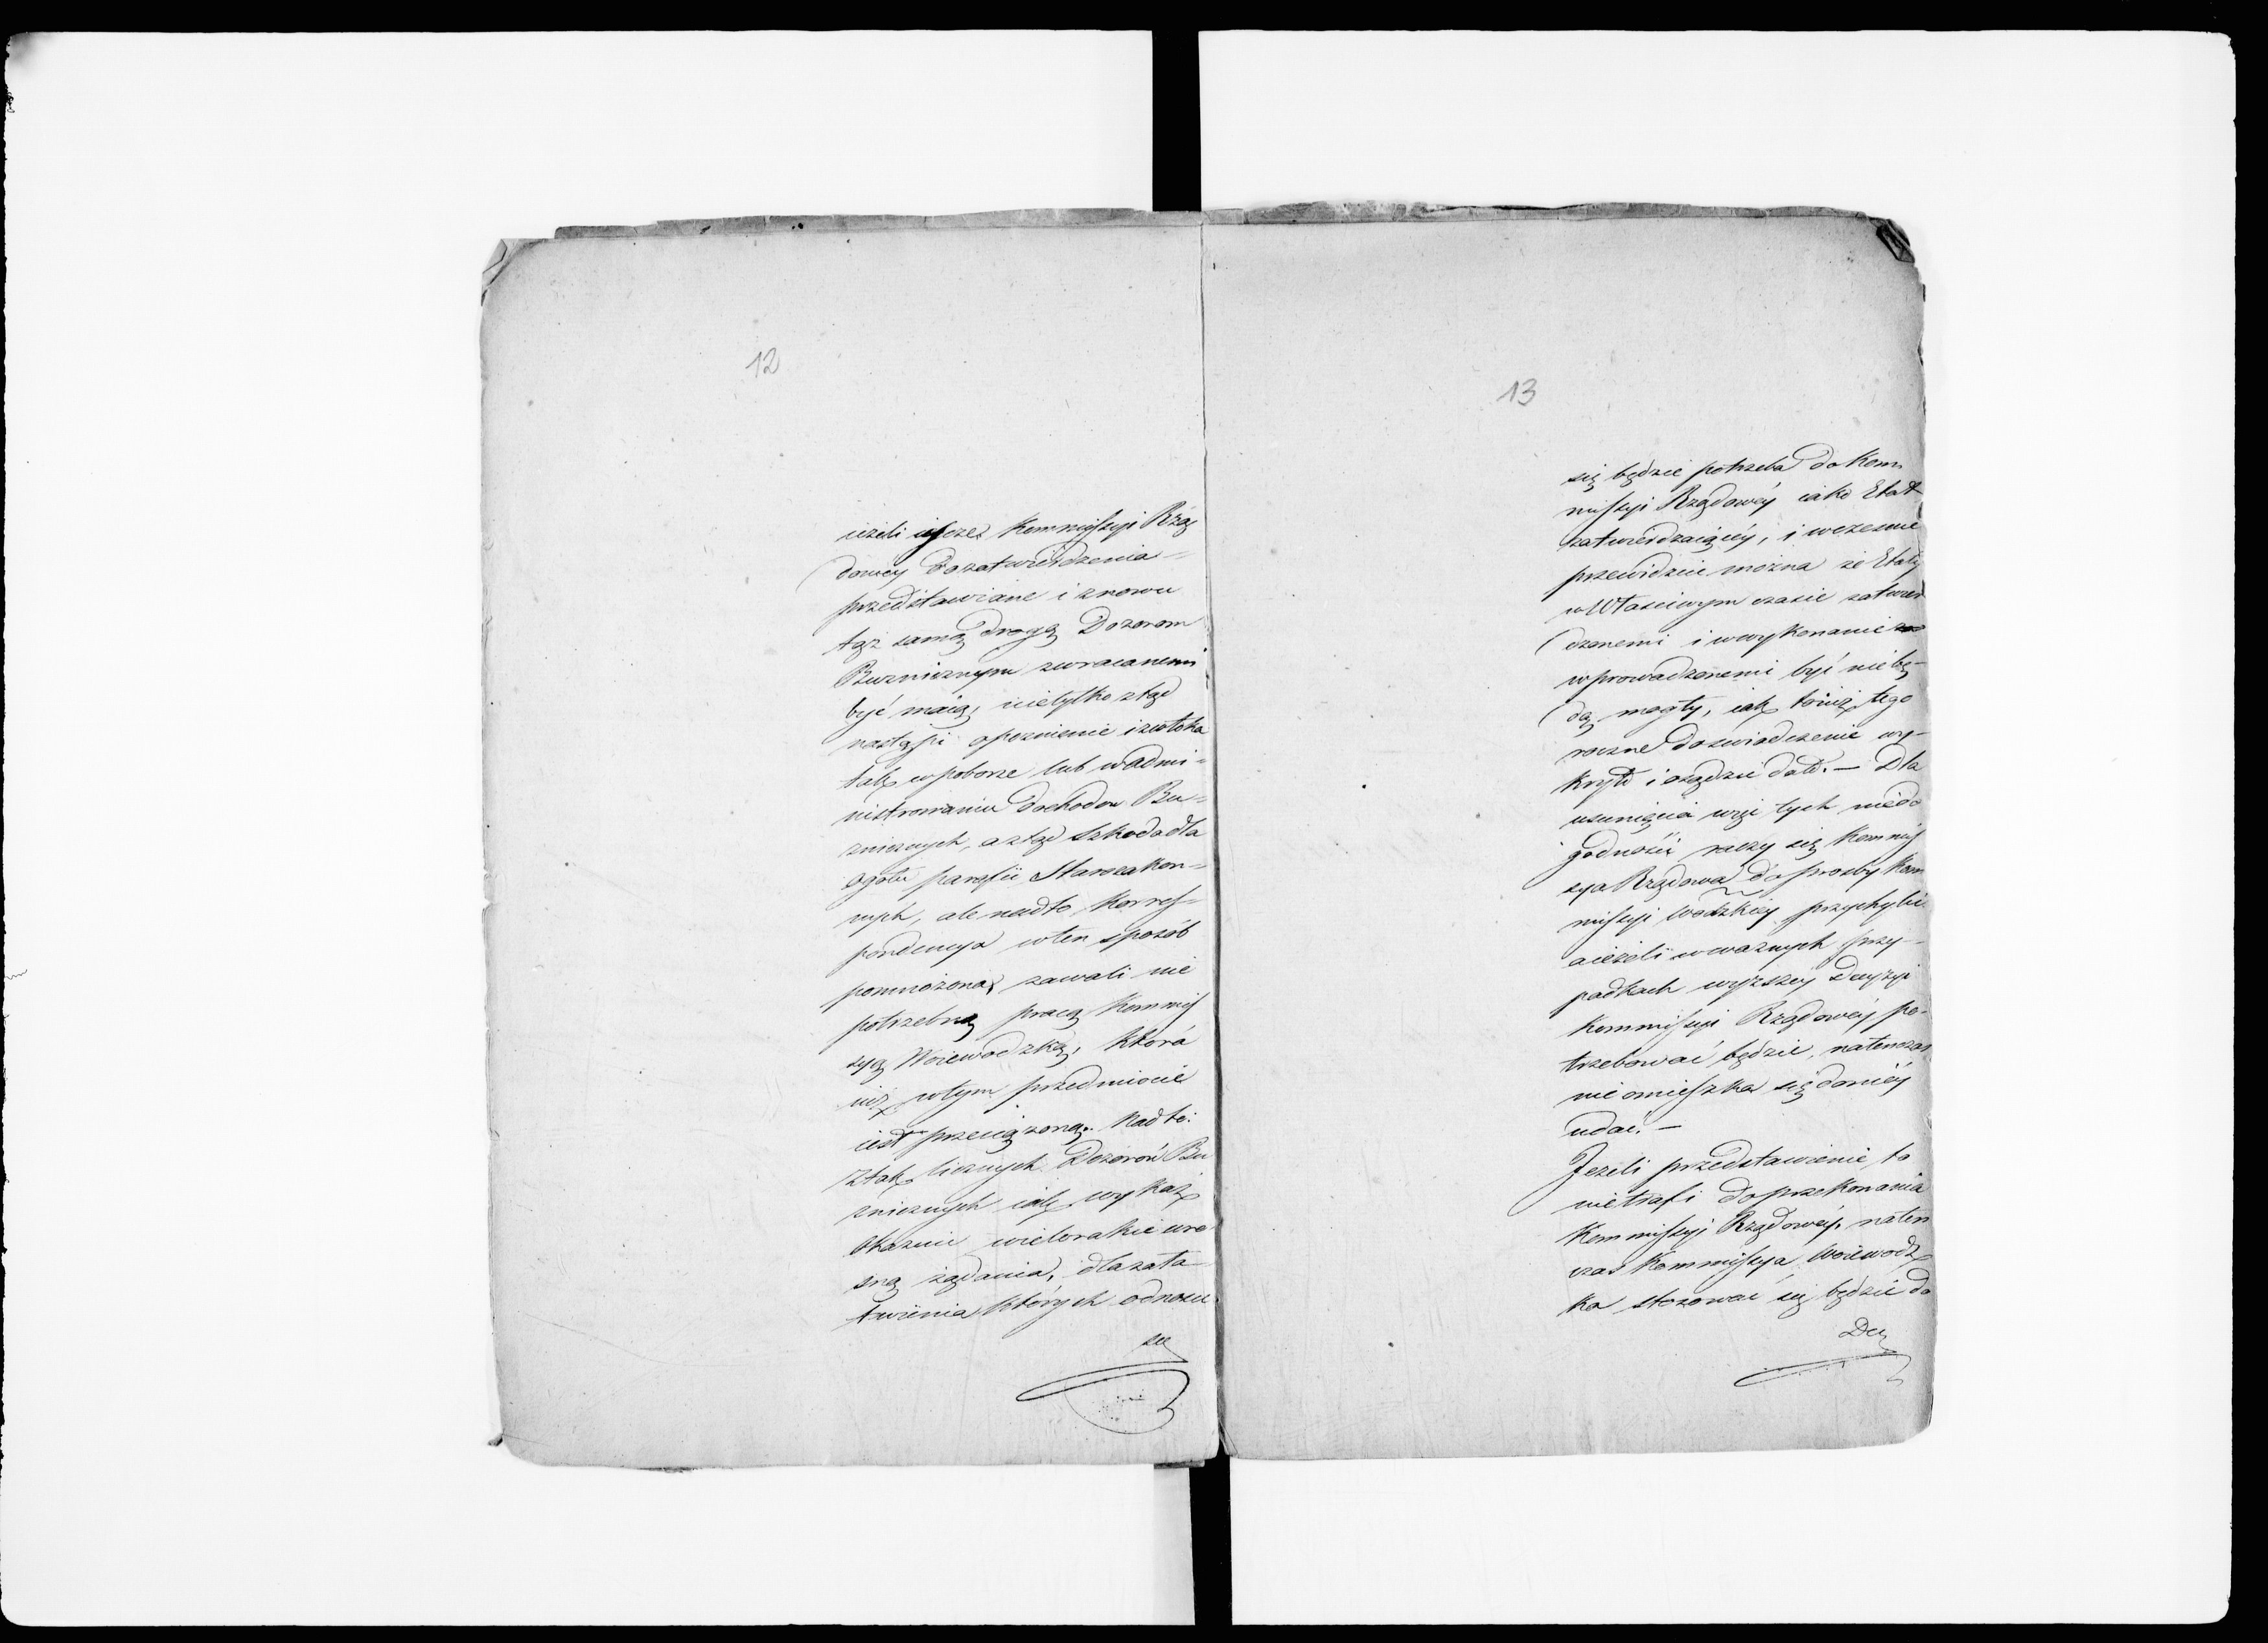 12
ieżeli ieszcze Kommissyi Rzą
dowey do zatwierdzenia =
przedstawiane i znowu
tąż samą drogą Dozorom
Buzniczym zwracanemi
być maią, nietylko ztąd
nastąpi opoznienie i zwłoka
tak w poborze lub w admi =
nistrowaniu dochodow Bu =
zniczych, a ztąd szkoda dla
ogółu parafii Starozakon =
nych, ale nadto Korres =
pondencya w ten sposób
pomnożona, zawali nie
potrzebną pracą Kommis
syą Woiewodzką, która
iuż w tym przedmiocie
iest przeciążoną. Nadto:
Z tak licznych Dozorów Bu
zniczych iak wykaz
okazuie wielorakie uro
sną żądania, dla zała
twienia których odnosić
się
13
się będzie potrzeba do Kom
missyi Rządowéy iako Etat
zatwierdzaiącéy, i wczesnie
przewidzieć można że Etaty
w Własciwym czasie zatwier
dzonemi i w wykonanie
wprowadzonemi być nie bę =
dą mogły, iak to iuż tego
roczne doswiadczenie wy =
kryło i osądzić dało. — Dla
usunięcia więc tych niedo
godności raczy się Kommis
sya Rządowa do prosby Kom
missyi Wodzkiey przychylić
a ieżeli w ważnych przy =
padkach wyższey decyzyi
Kommissyi Rządowéy po =
trzebować będzie, natenczas
nieomieszka się do niéy
udać. —
Jeżeli przedstawienie to
nietrafi do przekonania
Kommissyi Rządowéy, naten
czas Kommissya Woiewodz
ka stosować się będzie do
Dey